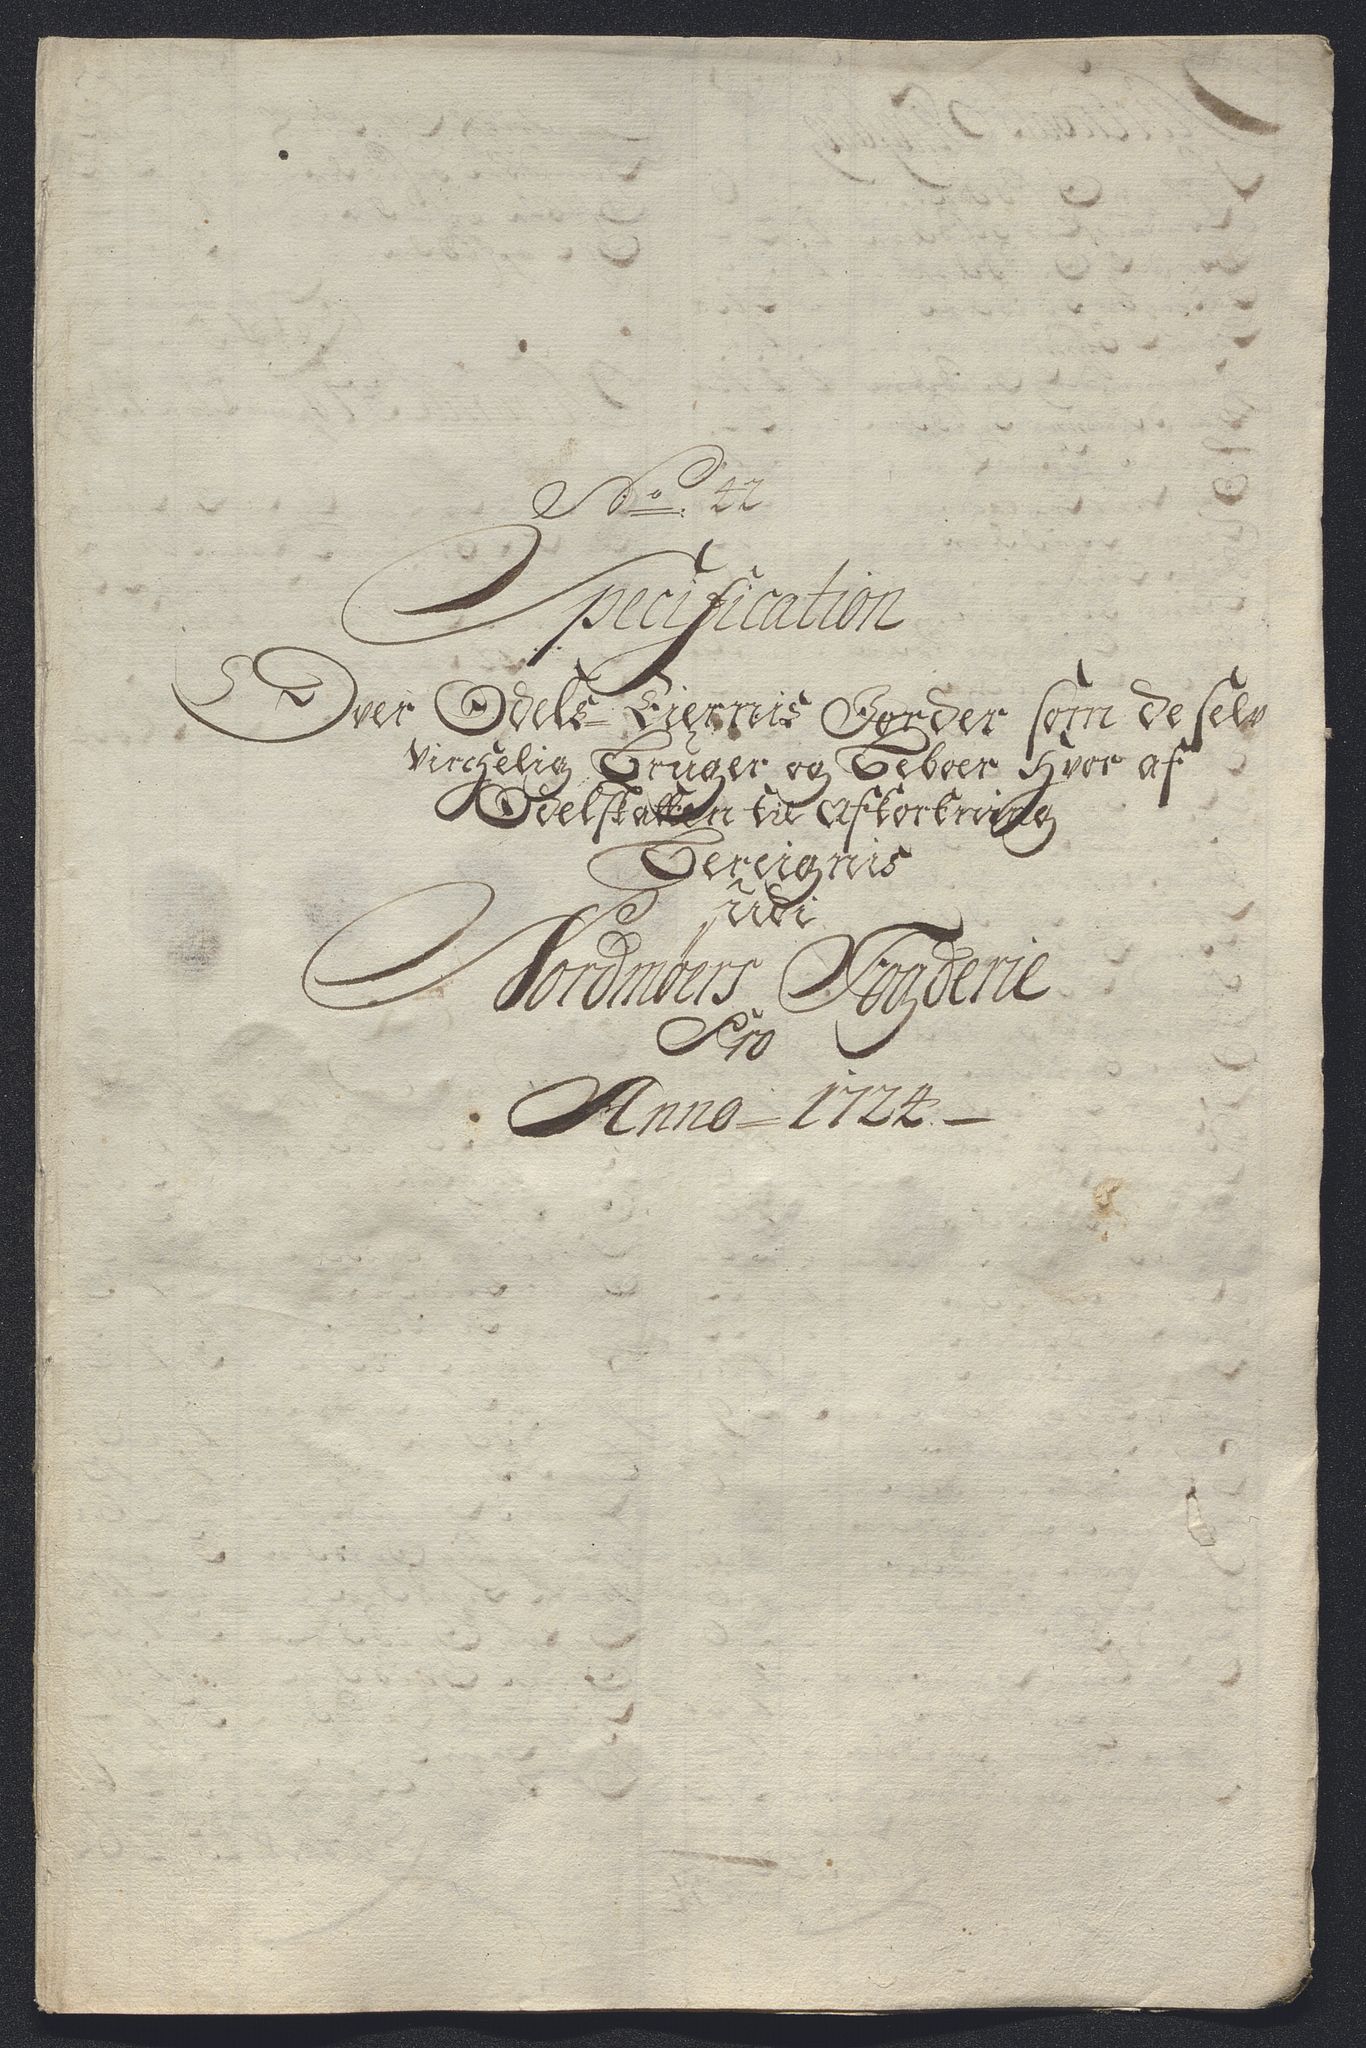 No. 22
Specification
Over Odels Eiernis Gorder som de selv
Virchelig Bruger og Beboer Hvor af
Odelskatten til Afkortning
Bereignis
udi
Nordmøers Fogderie
Pro
Anno 1724